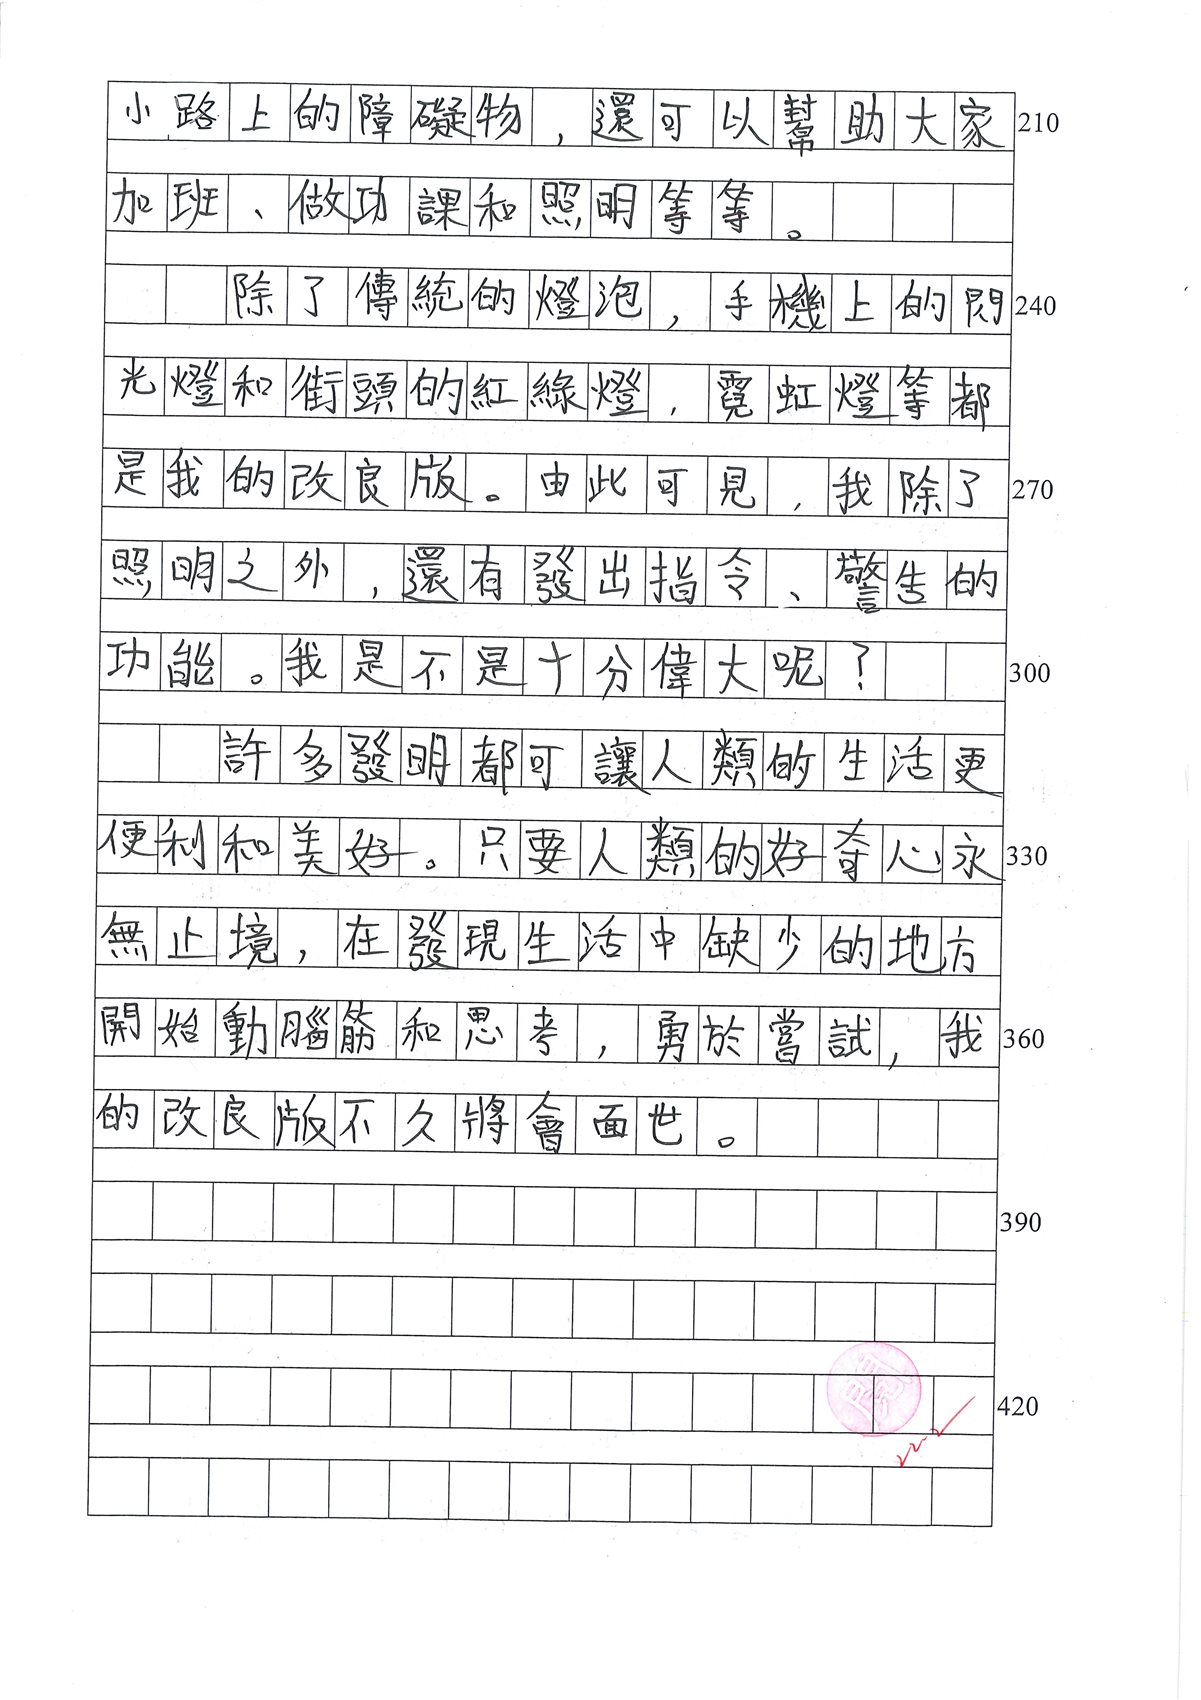 小路上的障礙物，還可以幫助大家 210
加班、做功課和照明等等。
除了傳統的燈泡，手機上的閃 240
光燈和街頭的紅綠燈，霓虹燈等都
是我的改良版。由此可見，我除了 270
照明之外，還有發出指令、警告的
功能。我是不是十分偉大呢？ 300
許多發明都可讓人類的生活更
便利和美好。只要人類的好奇心永 330
無止境，在發現生活中缺少的地方
開始動腦筋和思考，勇於嘗試，我 360
的改良版不久將會面世。
390
420